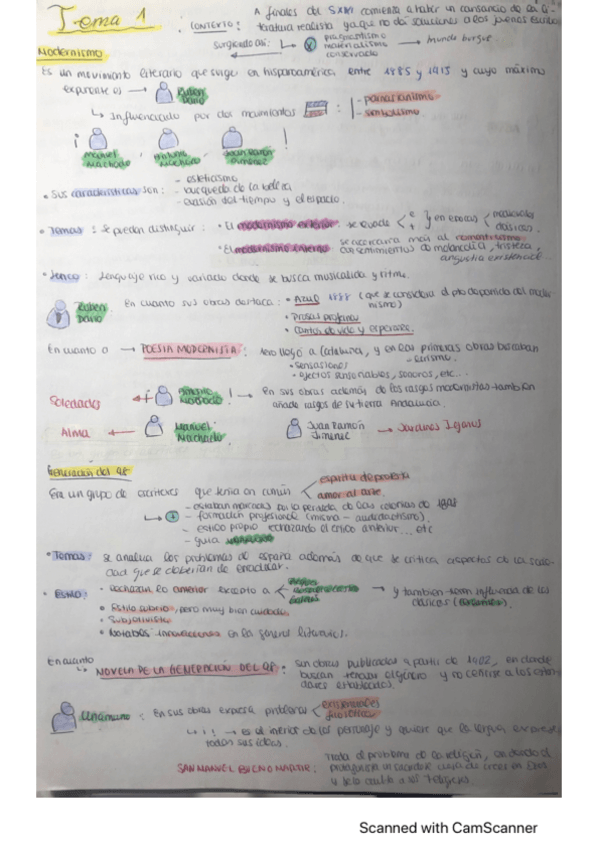 Tema 1
CONTEXTO: A finales del SXIX comienza a haber un cansancio de la li-
teratura realista ya que no da soluciones a los jovenes
Surgiendo así: pragmatismo
materialismo
conservador
mundo burgue.
Modernismo
Es un movimiento literario que surge en hispanoamérica entre 1885 y 1915 y cuyo máximo
exponente es Rubén Darío
Influenciado por dos movimientos : - parnasianismo
- simbolismo
¡ Manuel Machado , Antonio Machado , Juan Ramón Jiménez !
• Sus características son: - esteticismo
- busqueda de la belleza
- evasión del tiempo y el espacio.
• Temas: se pueden distinguir: • El modernismo exterior: se evade e t } en epocas medievales
clasicas.
• El modernismo interno se acercaria mas al romanticismo
con sentimientos de melancolia, tristeza,
angustia existencial...
• Lengua: lenguaje rico y variado donde se busca musicalidad y ritmo.
Rubén Darío En cuanto sus obras destaca: • Azul 1888 (que se considera el pto de partida del moder-
nismo)
• Prosas profanas
• Cantos de vida y esperanza.
En cuanto a → POESIA MODERNISTA: , y en las primeras obras
• sensaciones
• efectos sensoriales, sonoros, etc...
Soledades ← ¡ Antonio Machado ! → En sus obras además de los rasgos modernistas también
añade rasgos de su tierra Andalucia.
Alma ← Manuel Machado
Juan Ramón Jimenez → Jardines lejanos
Generación del 98
Era un grupo de escritores que tenia en común espiritu de protesta
amor al arte.
- estaban marcados por la perdida de las colonias de 1898
- formación profesional (misma - autodidactismo).
- estilo propio rechazando el estilo anterior... etc
- guia
• Temas: se analiza los problemas de españa además de que se critica aspectos de la socie-
dad que se deberian de erradicar.
• Estilo: • Rechazan lo anterior excepto a → y tambien tienen influencia de los
clásicos
• Estilo sobrio, pero muy bien cuidado.
• Subjetivista
• Notables innovaciones en los generos literarios.
En cuanto
NOVELA DE LA GENERACIÓN DEL 98: son obras publicadas a partir de 1902, en donde
buscan renovar el género y no ceñirse a los están-
dares establecidos.
Unamuno: En sus obras expresa problemas existenciales
filosóficos
¡ ! → es el interior de los personaje y quiere que la lengua exprese
todas sus ideas.
SAN MANUEL BUENO MARTIR: Trata el problema de la religión, en donde el
protagonista un sacerdote deja de creer en Dios
y se lo oculta a sus feligreses.
Scanned with CamScanner